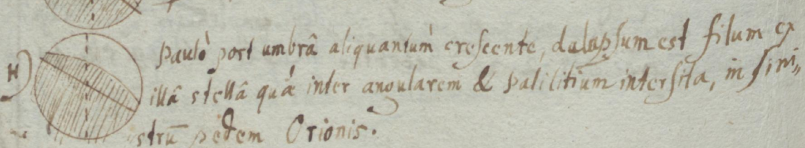 H) Paulò post umbrâ aliquantum crescente, delapsum est filum ex
illâ stellâ quæ inter angularem & Palilitium intersita, in sini,,
strū pedem Orionis.